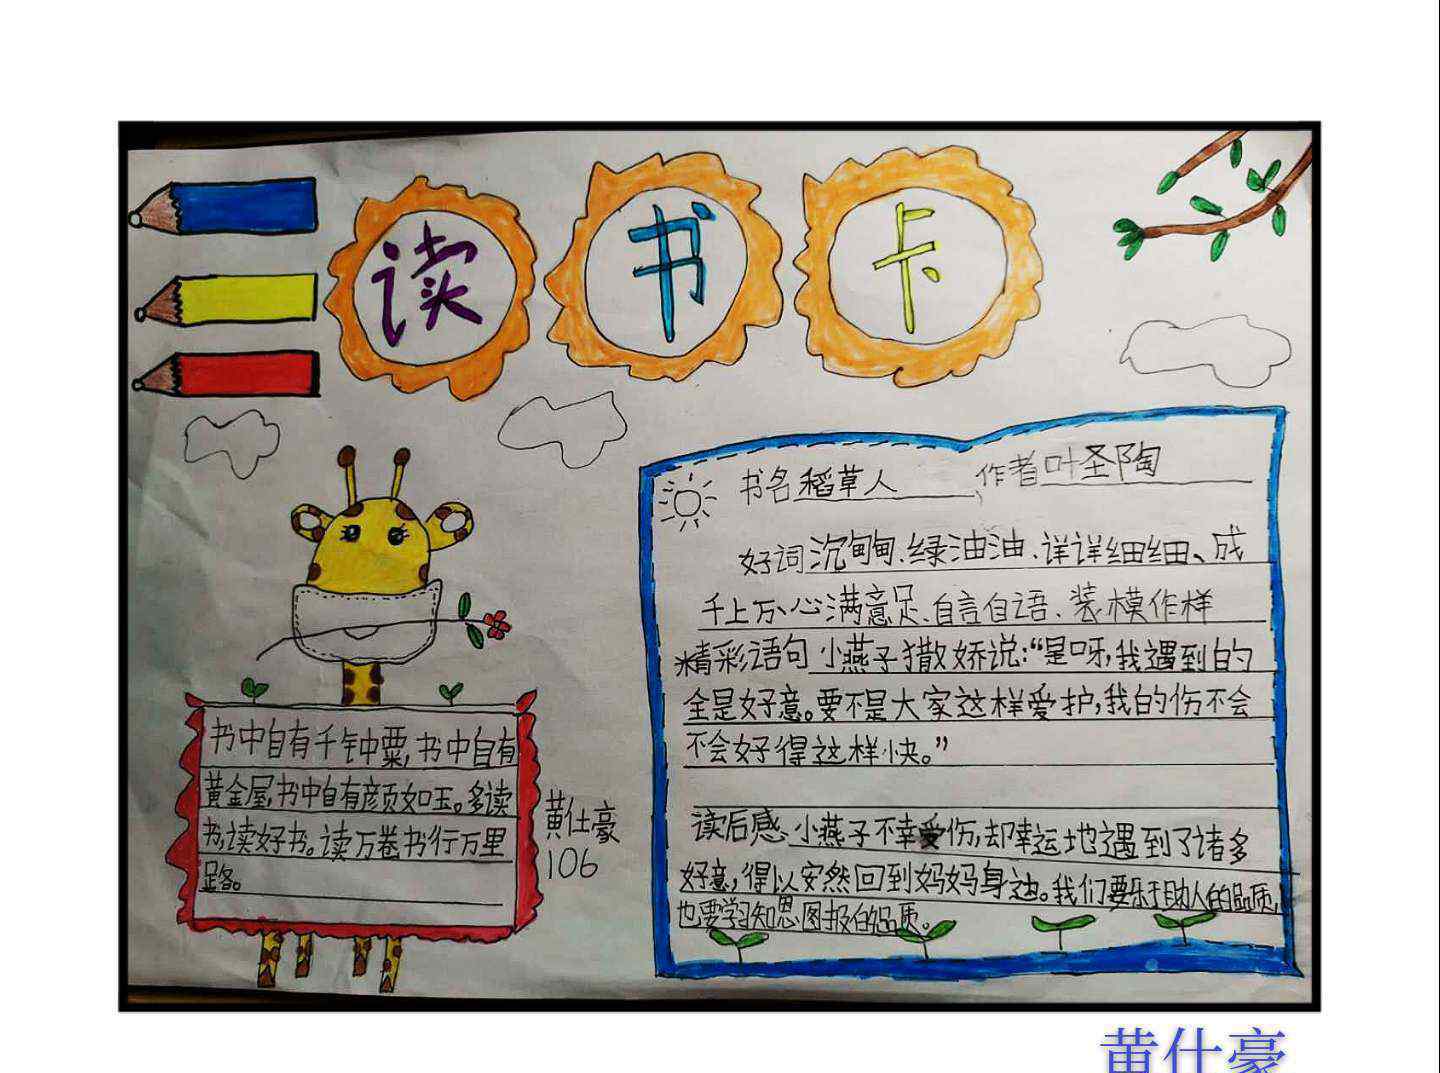 读书卡
书名稻草人 作者叶圣陶
好词沉甸甸、绿油油、详详细细、成
千上万、心满意足、自言自语、装模作样
精彩语句小燕子撒娇说:“是呀,我遇到的
全是好意。要不是大家这样爱护,我的伤不会
不会好得这样快。”
读后感、小燕子不幸受伤,却幸运地遇到了诸多
好意,得以安然回到妈妈身边。我们要乐于助人的品质,
也要学习知恩图报的品质。
书中自有千钟粟,书中自有
黄金屋,书中自有颜如玉。多读
书,读好书。读万卷书行万里
路。
黄仕豪
106
黄仕豪